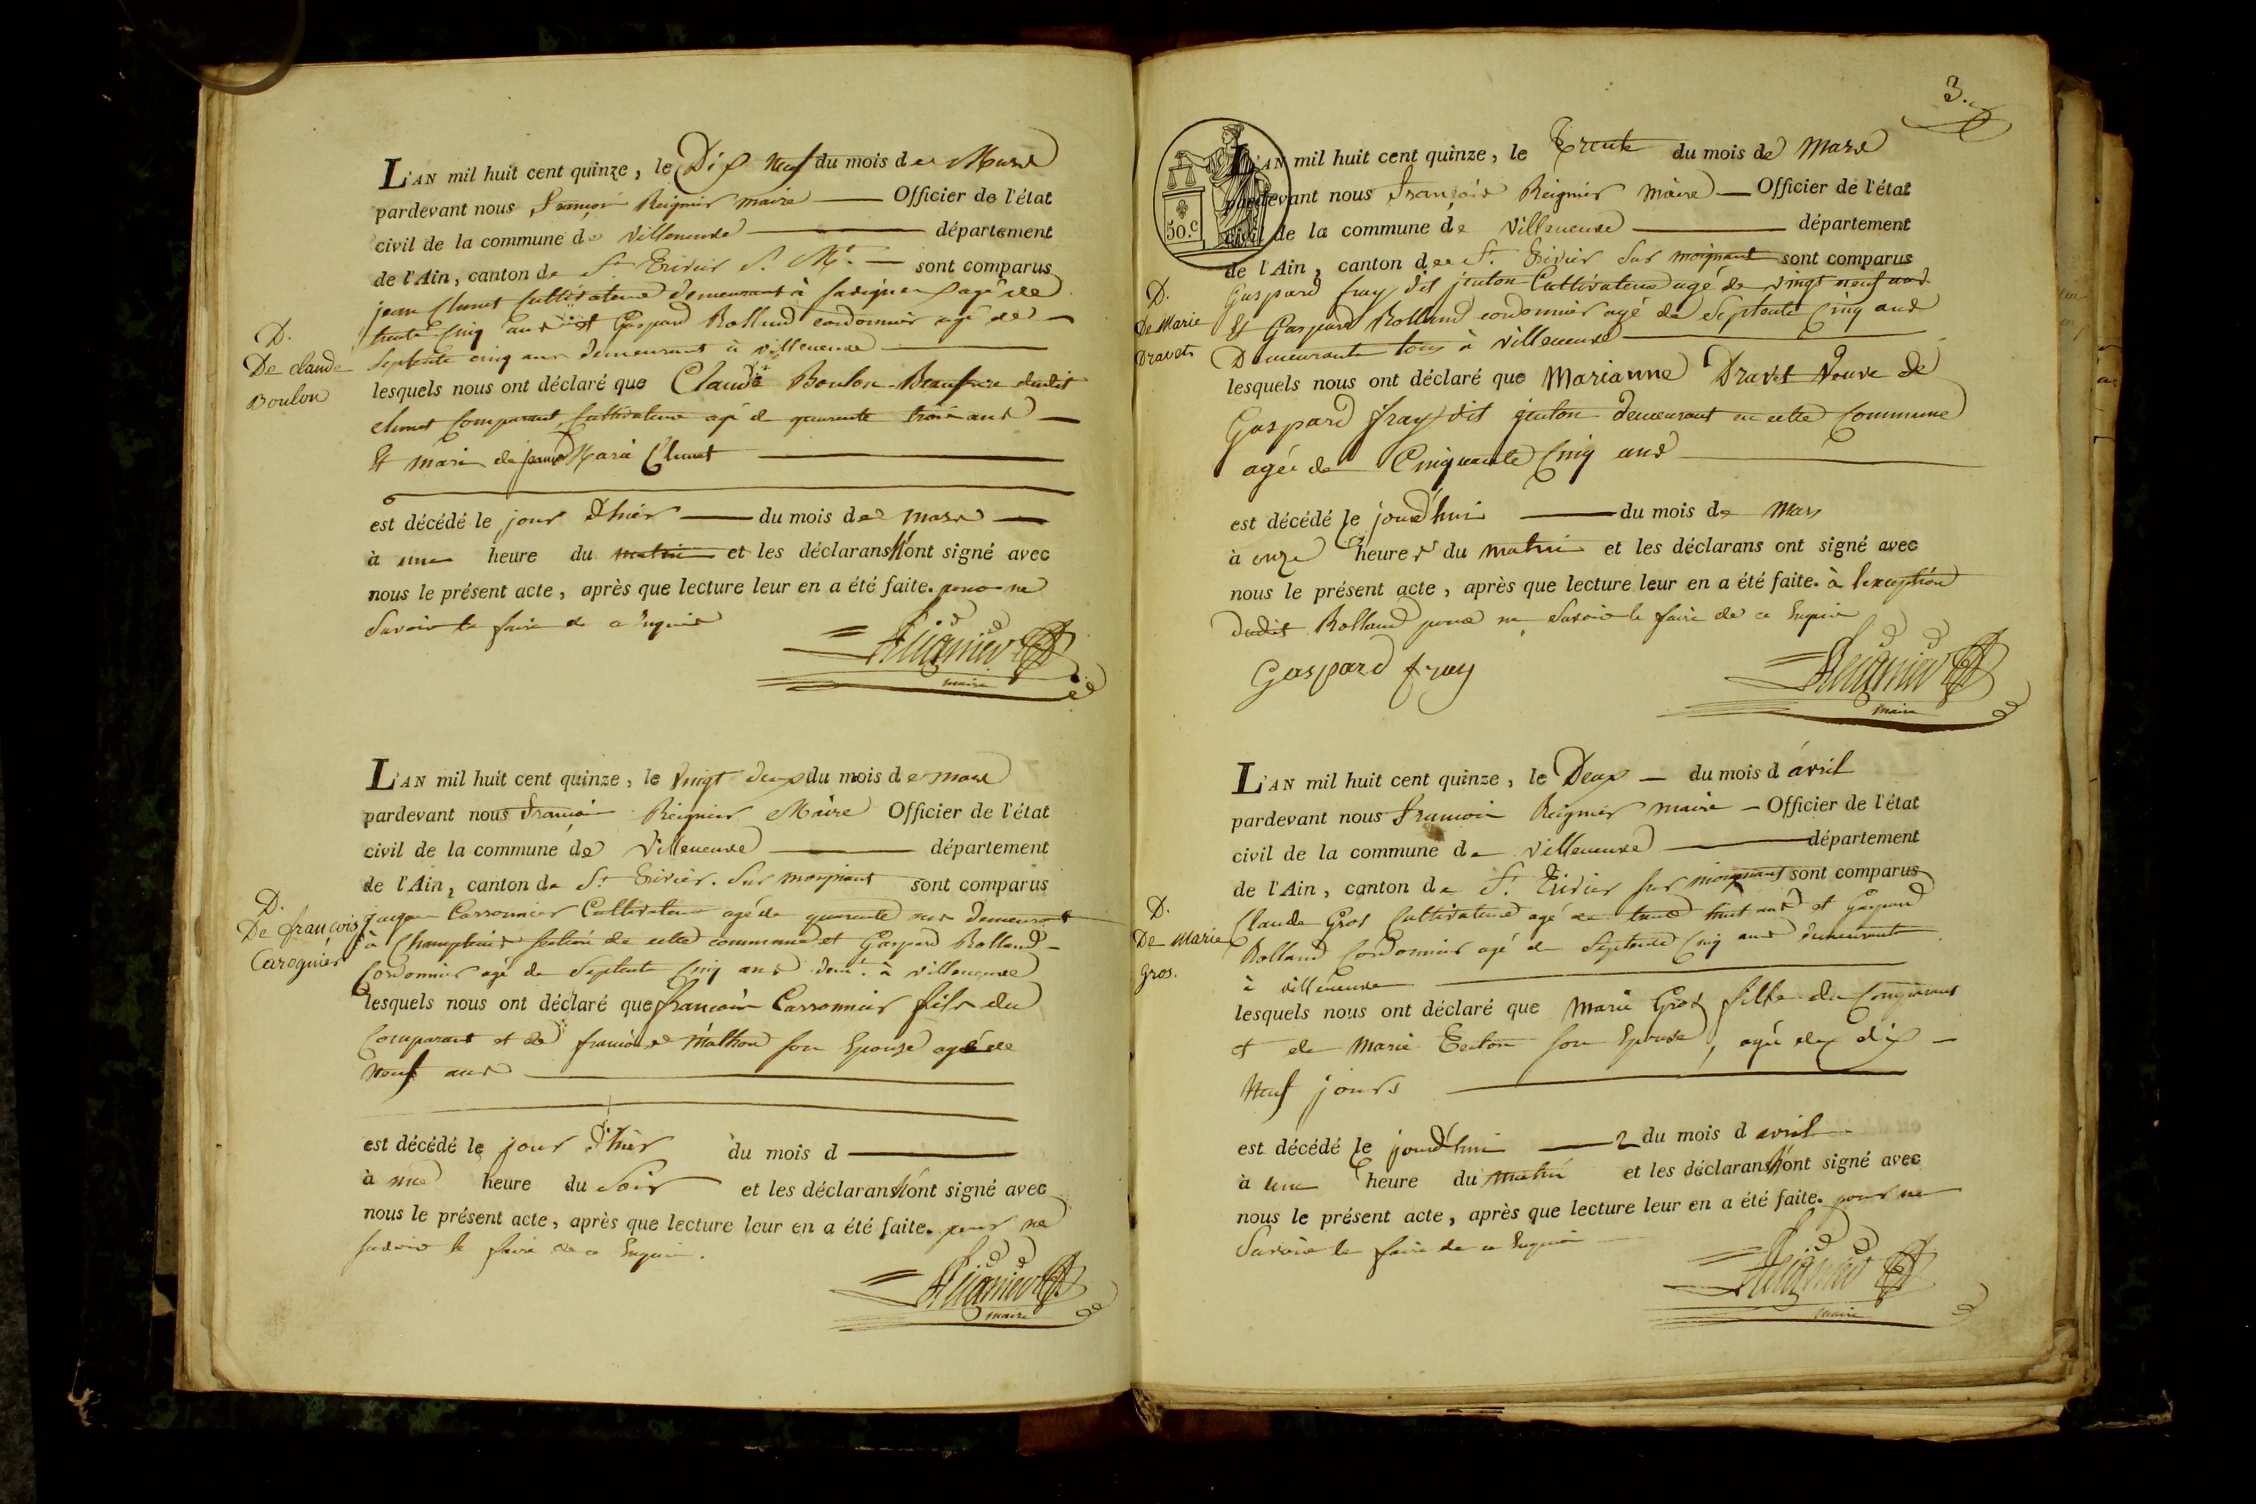 L'AN mil huit cent quinze, le Dix neuf du mois de Mars
pardevant nous François Reignier maire Officier de l'état
civil de la commune de Villeneuve département
de l'Ain, canton de St Trivier S. Mt. sont comparus
jean Clunet Cultivateur demeurant à savigneux agé de
trente cinq ans et Gaspard Rolland cordonnier agé de
septente cinq ans demeurant à villeneuve
D.
De claude
Boulon
lesquels nous ont déclaré que Claude Boulon Beaufrere dudit
clunet Comparant, Cultivateur agé de quarente trois ans
Et mari de jeanne Marie Clunet
est décédé le jour d'hier du mois de mars
à une heure du matin et les déclarans n'ont signé avec
nous le présent acte, après que lecture leur en a été faite. pour ne
Savoir le faire de ce Enquis
Reignier
maire
L'AN mil huit cent quinze, le vingt deux du mois de mars
pardevant nous François Reignier Maire Officier de l'état
civil de la commune de Villeneuve département
de l'Ain, canton de St Trivier Sur moignant sont comparus
jacque Carronnier Cultivateur agé de quarente ans demeurant
à Champteins section de cette commune et Gaspard Rolland
Cordonnier agé de Septente Cinq ans demt. à villeneuve
D.
De françois
Carognier
lesquels nous ont déclaré que françois Carronnier fils du
Comparant et de françoise Mathon son Epouse agé de
Neuf ans
est décédé le jour d'hier du mois d
à une heure du Soir et les déclarans n'ont signé avec
nous le présent acte, après que lecture leur en a été faite. pour ne
savoir le faire de ce Enquis.
Reignier
maire
3.
50.c
L'AN mil huit cent quinze, le Trente du mois de Mars
pardevant nous François Reignier Maire Officier de l'état
civil de la commune de Villeneuve département
de l'Ain, canton de St. Trivier Sur moignant sont comparus
Gaspard fray dit jenton Cultivateur agé de vingt neuf ans
Et Gaspard Rolland cordonnier agé de Septente Cinq ans
Demeurants tous à villeneuve
D.
De Marie
Dravet
lesquels nous ont déclaré que Marianne Dravet Veuve de
Gaspard fray dit jenton demeurant en cette Commune
agée de Cinquante Cinq ans
est décédé le jourd'hui du mois de Mars
à onze heures du matin et les déclarans ont signé avec
nous le présent acte, après que lecture leur en a été faite. à l'exception
dudit Rolland pour ne Savoir le faire de ce Enquis
Gaspard fray
Reignier
maire
L'AN mil huit cent quinze, le Deux du mois d'avril
pardevant nous François Reignier maire Officier de l'état
civil de la commune de Villeneuve département
de l'Ain, canton de St. Trivier sur moignant sont comparus
Claude Gros Cultivateur agé de trente huit ans et Gaspard
Rolland Cordonnier agé de Septente Cinq ans demeurants
à villeneuve
D.
De Marie
Gros.
lesquels nous ont déclaré que Marie Gros fille du Comparant
et de Marie Teston son Epouse, agée de dix
Neuf jours
est décédé le jourd'hui 2 du mois d avril
à une heure du matin et les déclarans n'ont signé avec
nous le présent acte, après que lecture leur en a été faite. pour ne
Savoir le faire de ce Enquis
Reignier
maire